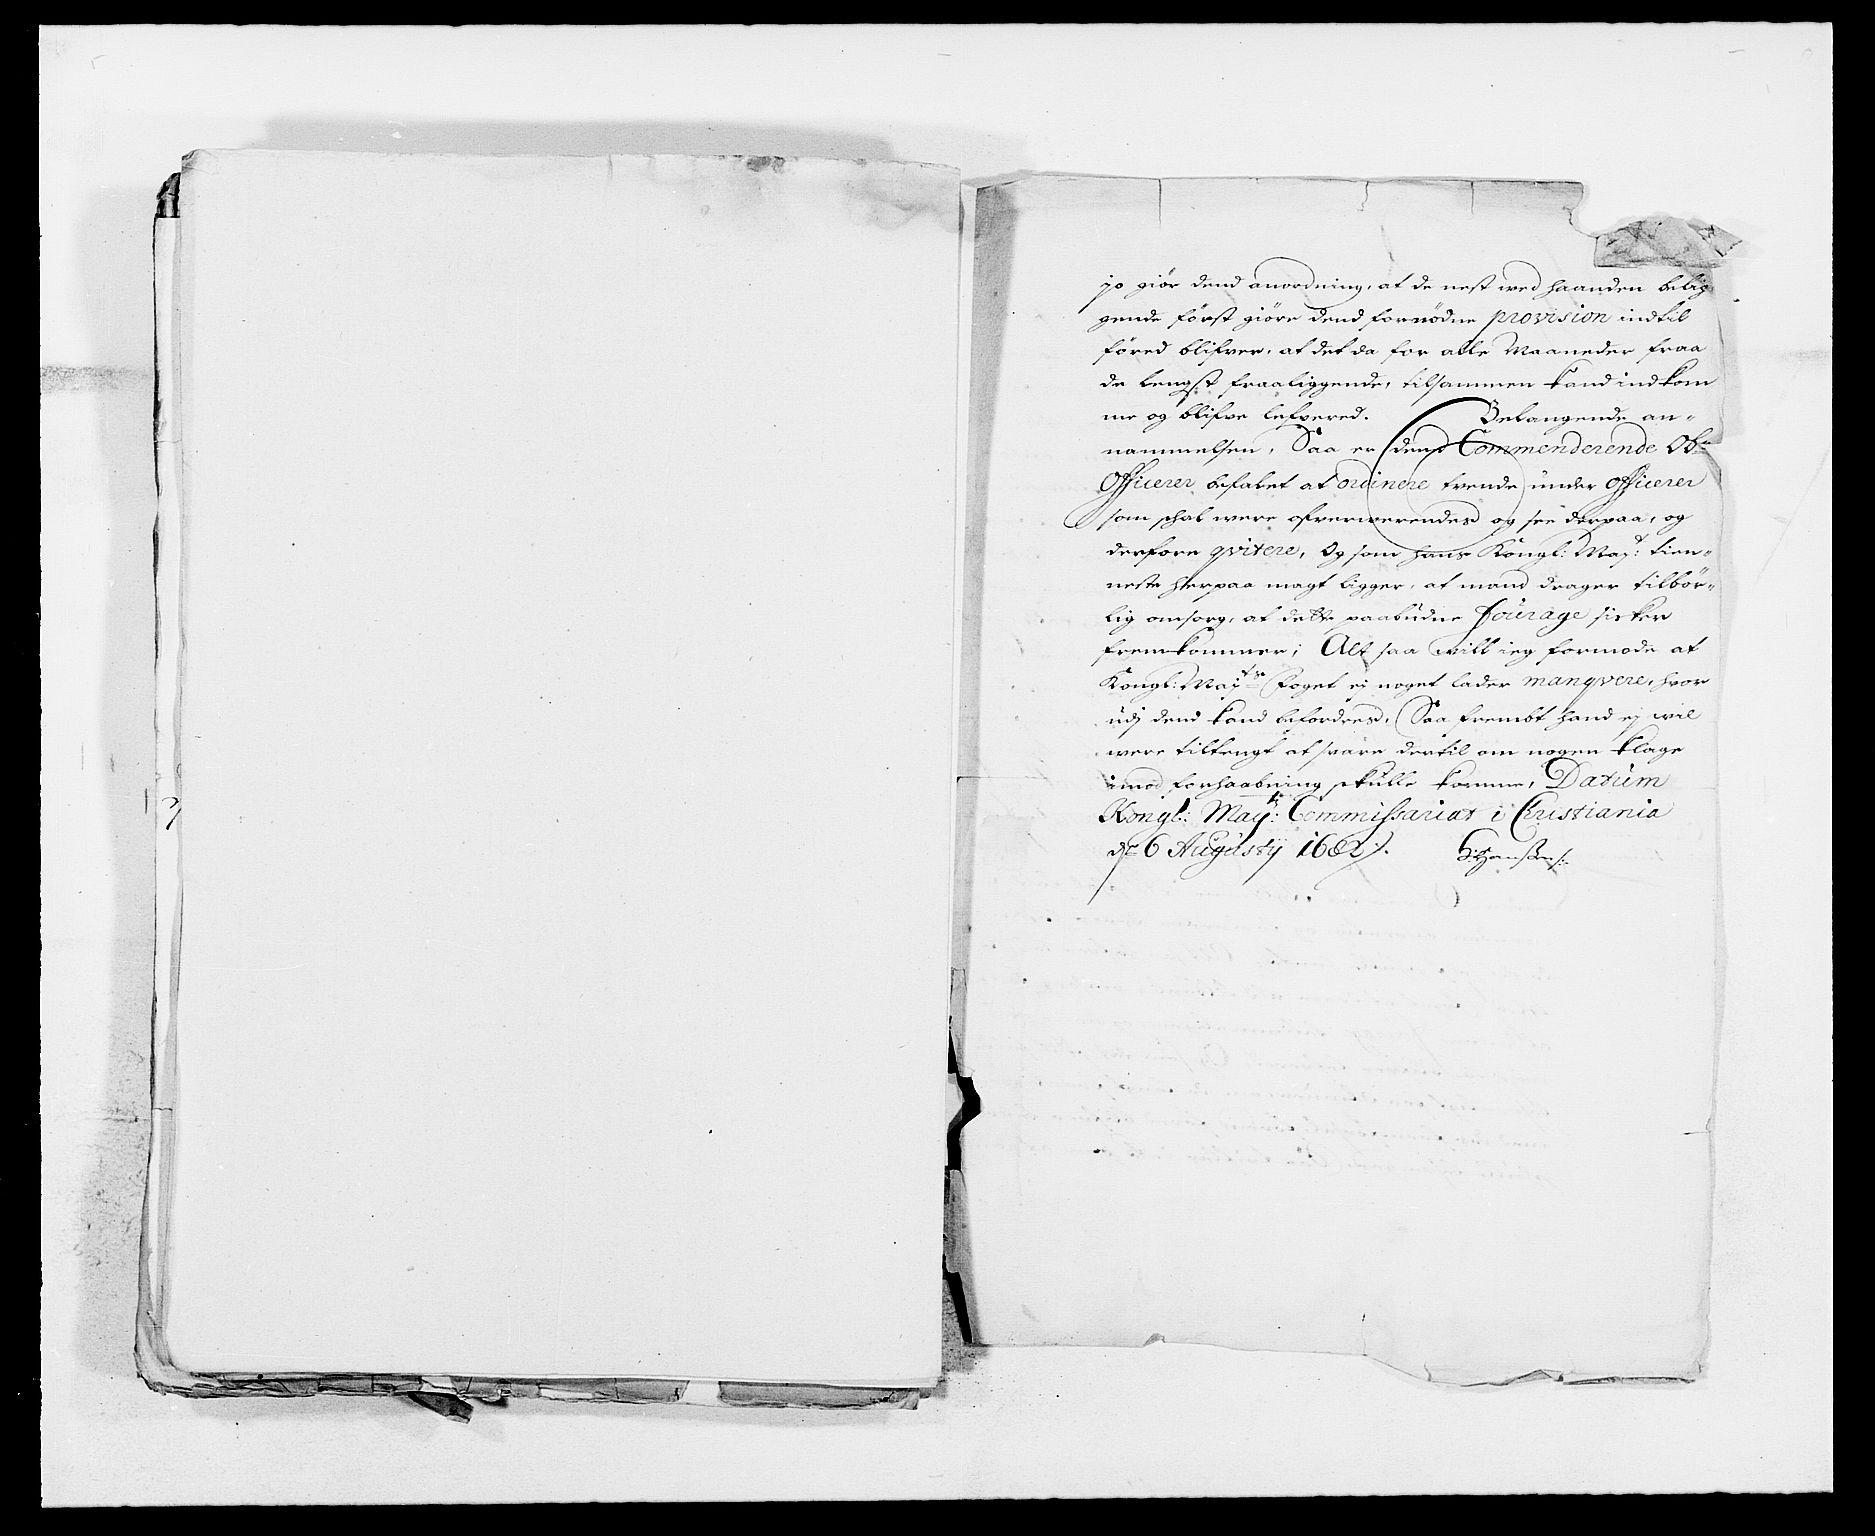 jo giör dend anordning, at de nest wed haanden belig
gende först giöre dend fornödne provision indtil
föred blifver, at det da for alle Maaneder fraa
de lengst fraaliggende, tilsammen kand indkom
me og blifve lefvered. Belangende an-
nammelsen, Saa er dend Commenderende
Officerer befalet at ordinere trende under Officerer
som schal were ofverwerendes og see derpaa, og
derfore qvitere, Og som hans Kongl: May: tien-
neste herpaa magt ligger, at mand drager tilbör-
lig omsorg, at dette paabudne fourage sicker
fremkommer; Alt saa will ieg formode at
Kongl: Mayts Foget ej noget lader manqvere, hvor
udj dend kand befordres, Saa frembt hand ej wil
were tiltengt at svare dertil om nogen klage
imod forhaabning skulle komme, Datum
Kongl: May: Commissariat i Christiania
6 Augustij 1682.